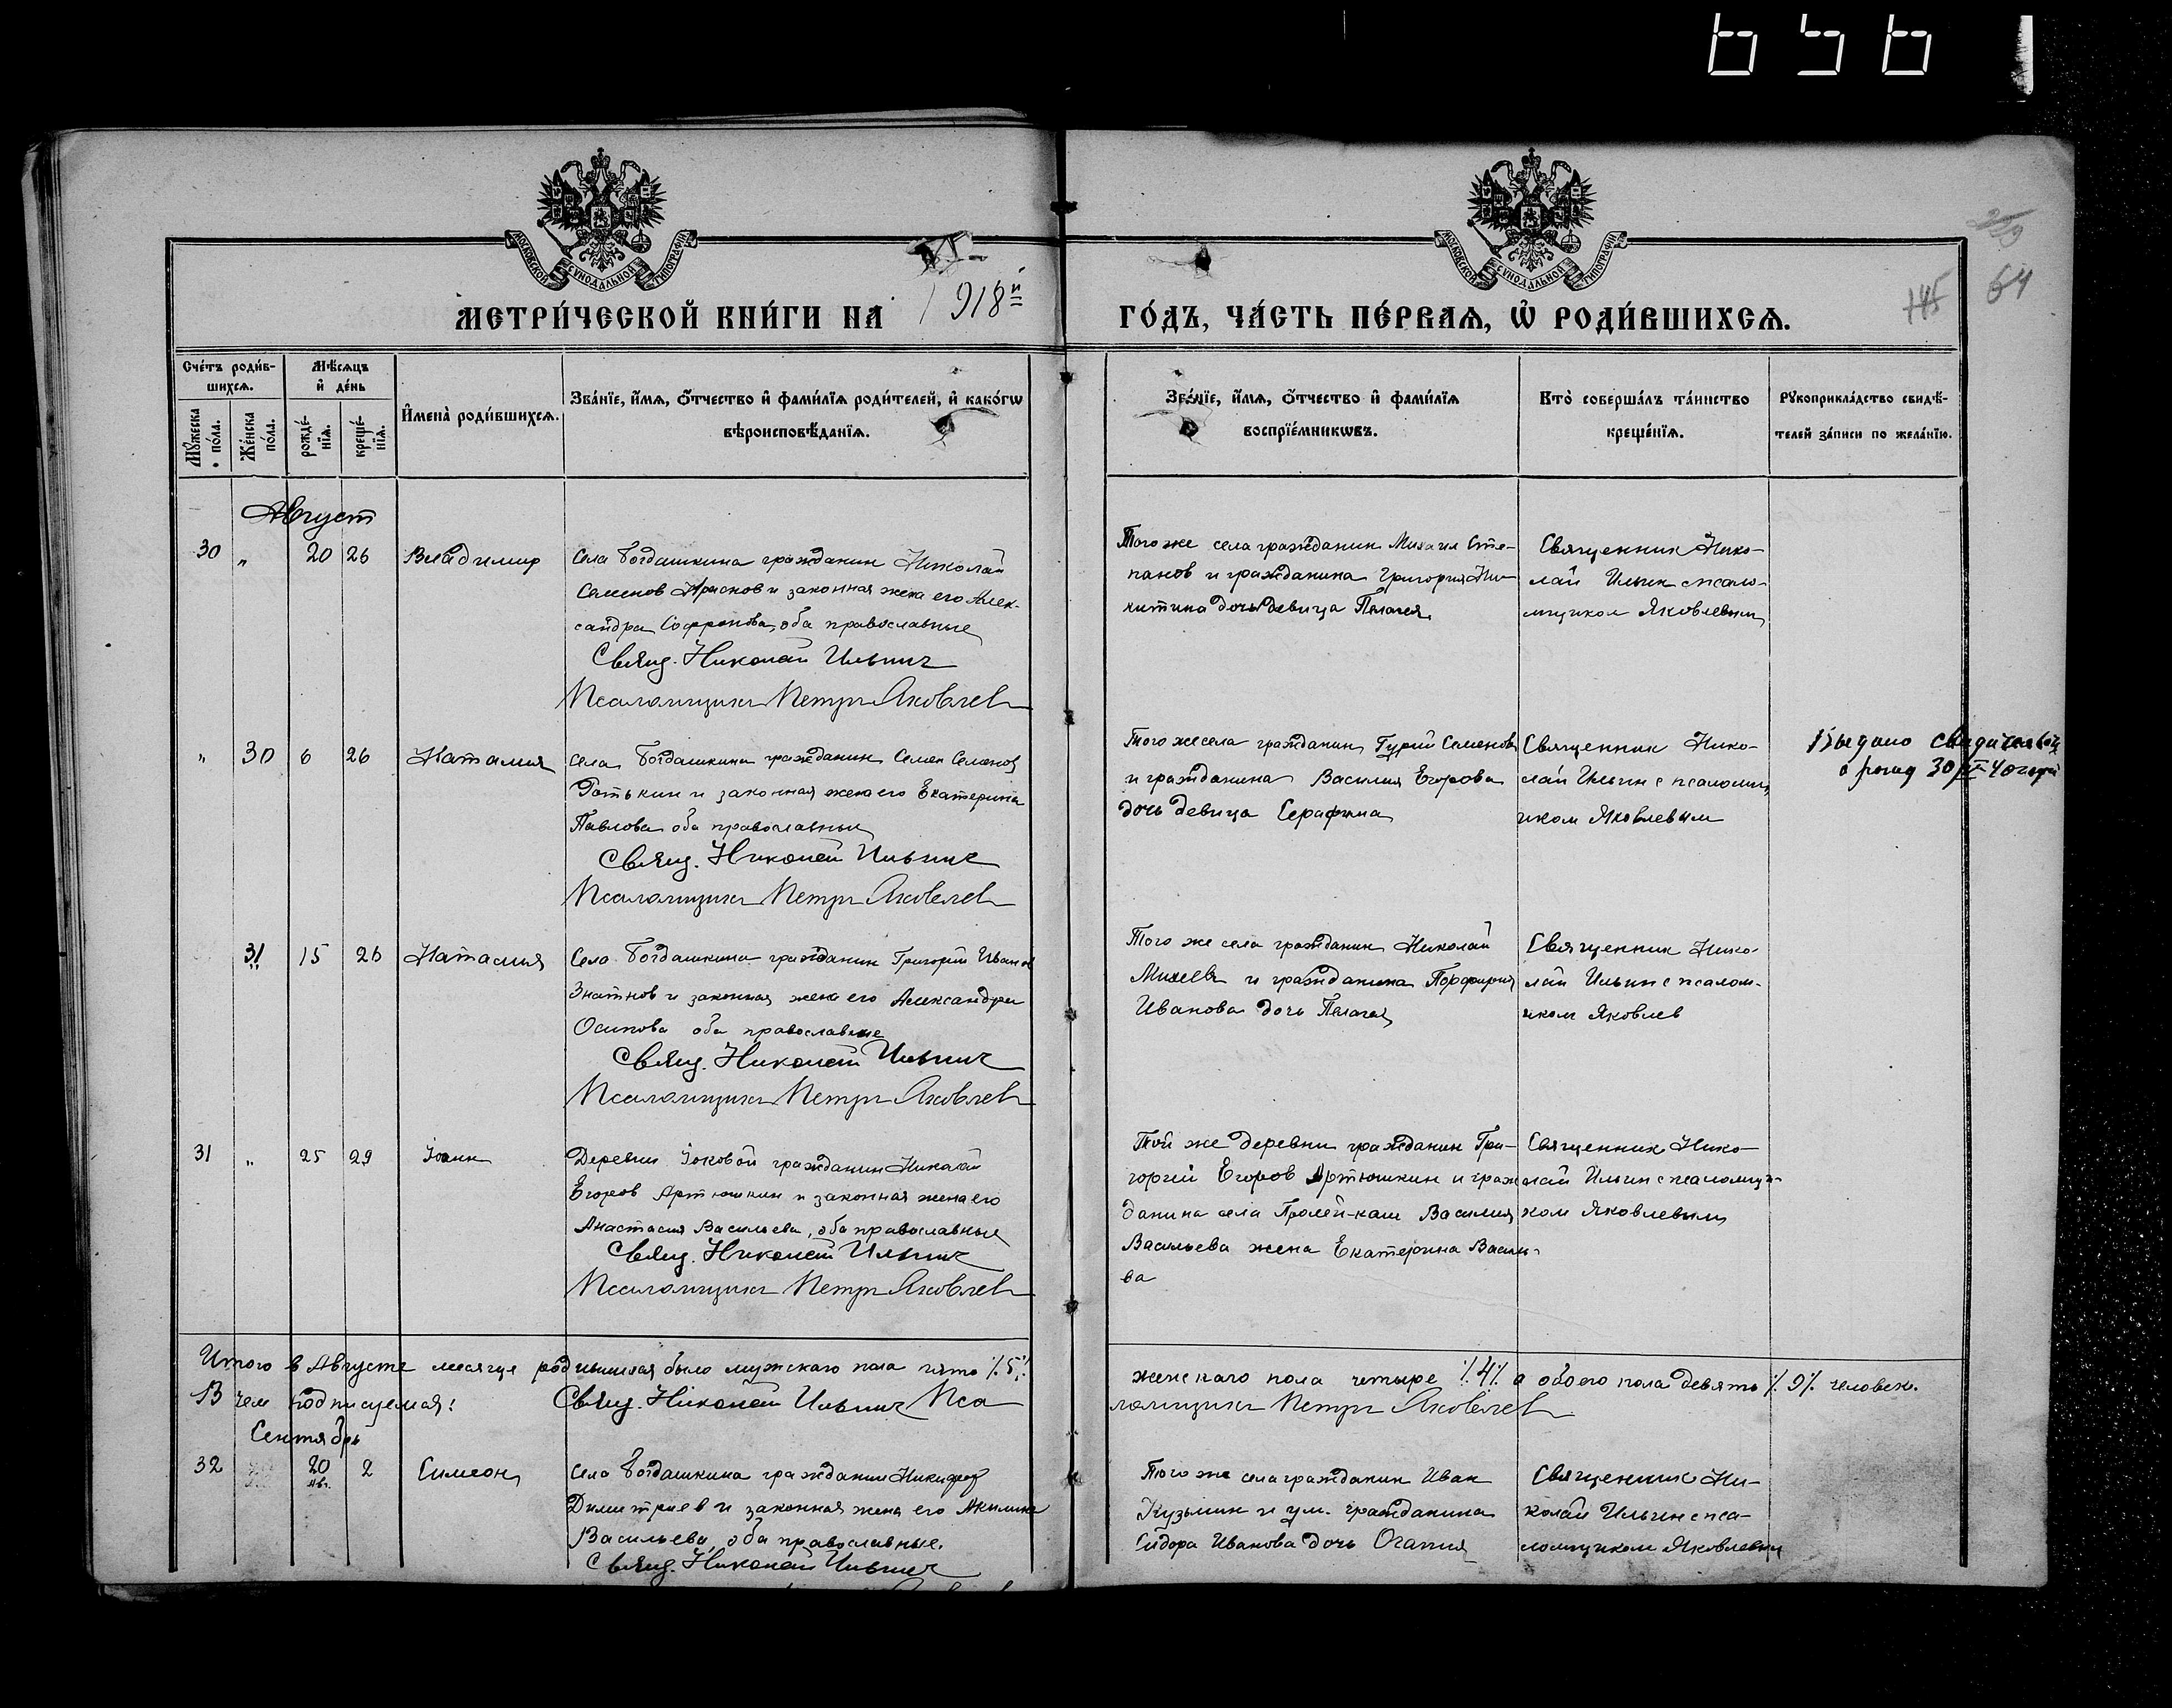 МОСКОВСКОЙ СѴНОДАЛЬНОЙ ТИПОГРАФІИ
МОСКОВСКОЙ СѴНОДАЛЬНОЙ ТИПОГРАФІИ
МЕТРИ́ЧЕСКОЙ КНИ́ГИ НА 1918й
ГО́ДЪ, ЧА́СТЬ ПЕ́РВАѦ, Ѡ҆ РОДИ́ВШИХСѦ.
145
64
Сче́тъ роди́в-
шихсѧ.
Мѣ́сѧцъ
и҆ де́нь
Мꙋ́жеска
по́ла.
Же́нска
по́ла.
рожде́-
нїѧ.
креще́-
нїѧ.
И҆мена̀ роди́вшихсѧ.
Зва́нїе, и҆́мѧ, ѻ҆́тчество и҆ фами́лїѧ роди́телей, и҆ како́гѡ
вѣроисповѣ́данїѧ.
Зва́нїе, и҆́мѧ, ѻ҆́тчество и҆ фами́лїѧ
воспрїе́мникѡвъ.
Кто̀ соверша́лъ та́инство
креще́нїѧ.
Рꙋкоприкла́дство свидѣ́-
телей за́писи по жела́нїю.
Август
30 " 20 26 Владимир
Села Богдашкина гражданин Николай
Семенов и законная жена его Алек-
сандра Софронова, оба православные
Свящ. Николай Ильин
Псаломщик Петр Яковлев
Того же села гражданин Михаил Сте-
панов и гражданина Григория Ни-
китина дочь девица Пелагея
Священник Нико-
лай Ильин с псало-
мщиком Яковлевым
" 30 6 26 Наталия
Села Богдашкина гражданин Семен Семенов
и законная жена его Екатерина
Павлова оба православные
Свящ. Николай Ильин
Псаломщик Петр Яковлев
Того же села гражданин Гурий Семенов
и гражданина Василия Егорова
дочь девица Серафима
Священник Нико-
лай Ильин с псаломщ
иком Яковлевым
Выдано
30
31 15 26 Наталия
Села Богдашкина гражданин Григорий Иванов
Знатнов и законная жена его Александра
Осипова оба православные
Свящ. Николай Ильин
Псаломщик Петр Яковлев
Того же села гражданин Николай
Михеев и гражданина Порфирия
Иванова дочь Пелагея
Священник Нико-
лай Ильин с псалом-
иком Яковлев
31 " 25 29 Іоанн
Деревни гражданин Николай
Егоров Артюшкин и законная жена его
Анастасия Васильева, оба православные
Свящ. Николай Ильин
Псаломщик Петр Яковлев
Той же деревни гражданин Гри-
горий Егоров Артюшкин и граж
данина села Василия
Васильева жена Екатерина Василь-
ва
Священник Нико-
лай Ильин с псаломщи-
ком Яковлевым
Итого в Августе месяце родившихся было мужскаго пола пять /.5./
женскаго пола четыре /.4./ а обоего пола девять /.9./ человек.
В чем подписуемся: Свящ. Николай Ильин Пса
ломщик Петр Яковлев
Сентябрь
32 20 Авг. 2 Симеон
Села Богдашкина гражданин Никифор
Димитриев и законная жена его Акилина
Васильева, оба православные.
Свящ. Николай Ильин
Того же села гражданин Иван
Кузьмин и ум. гражданина
Сидора Иванова дочь
Священник Ни-
колай Ильин с пса-
ломщиком Яковлевым